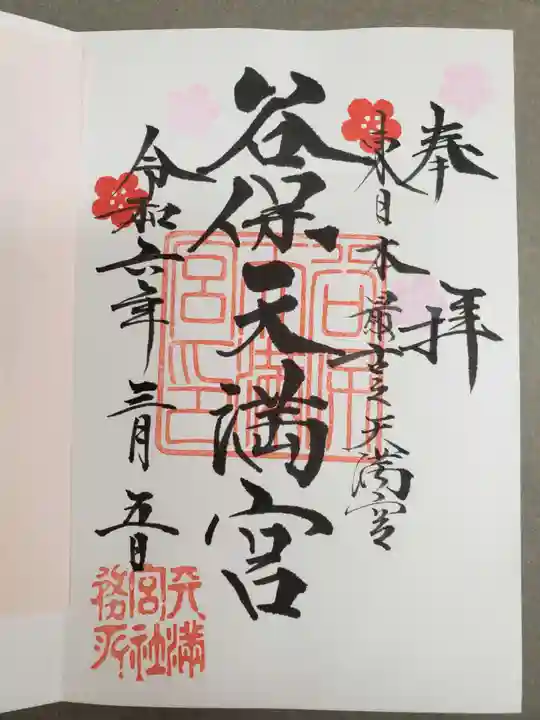 奉拝
東日本最古之天満宮
谷保天満宮
令和六年三月五日
谷保天満宮之印
天満宮社務所